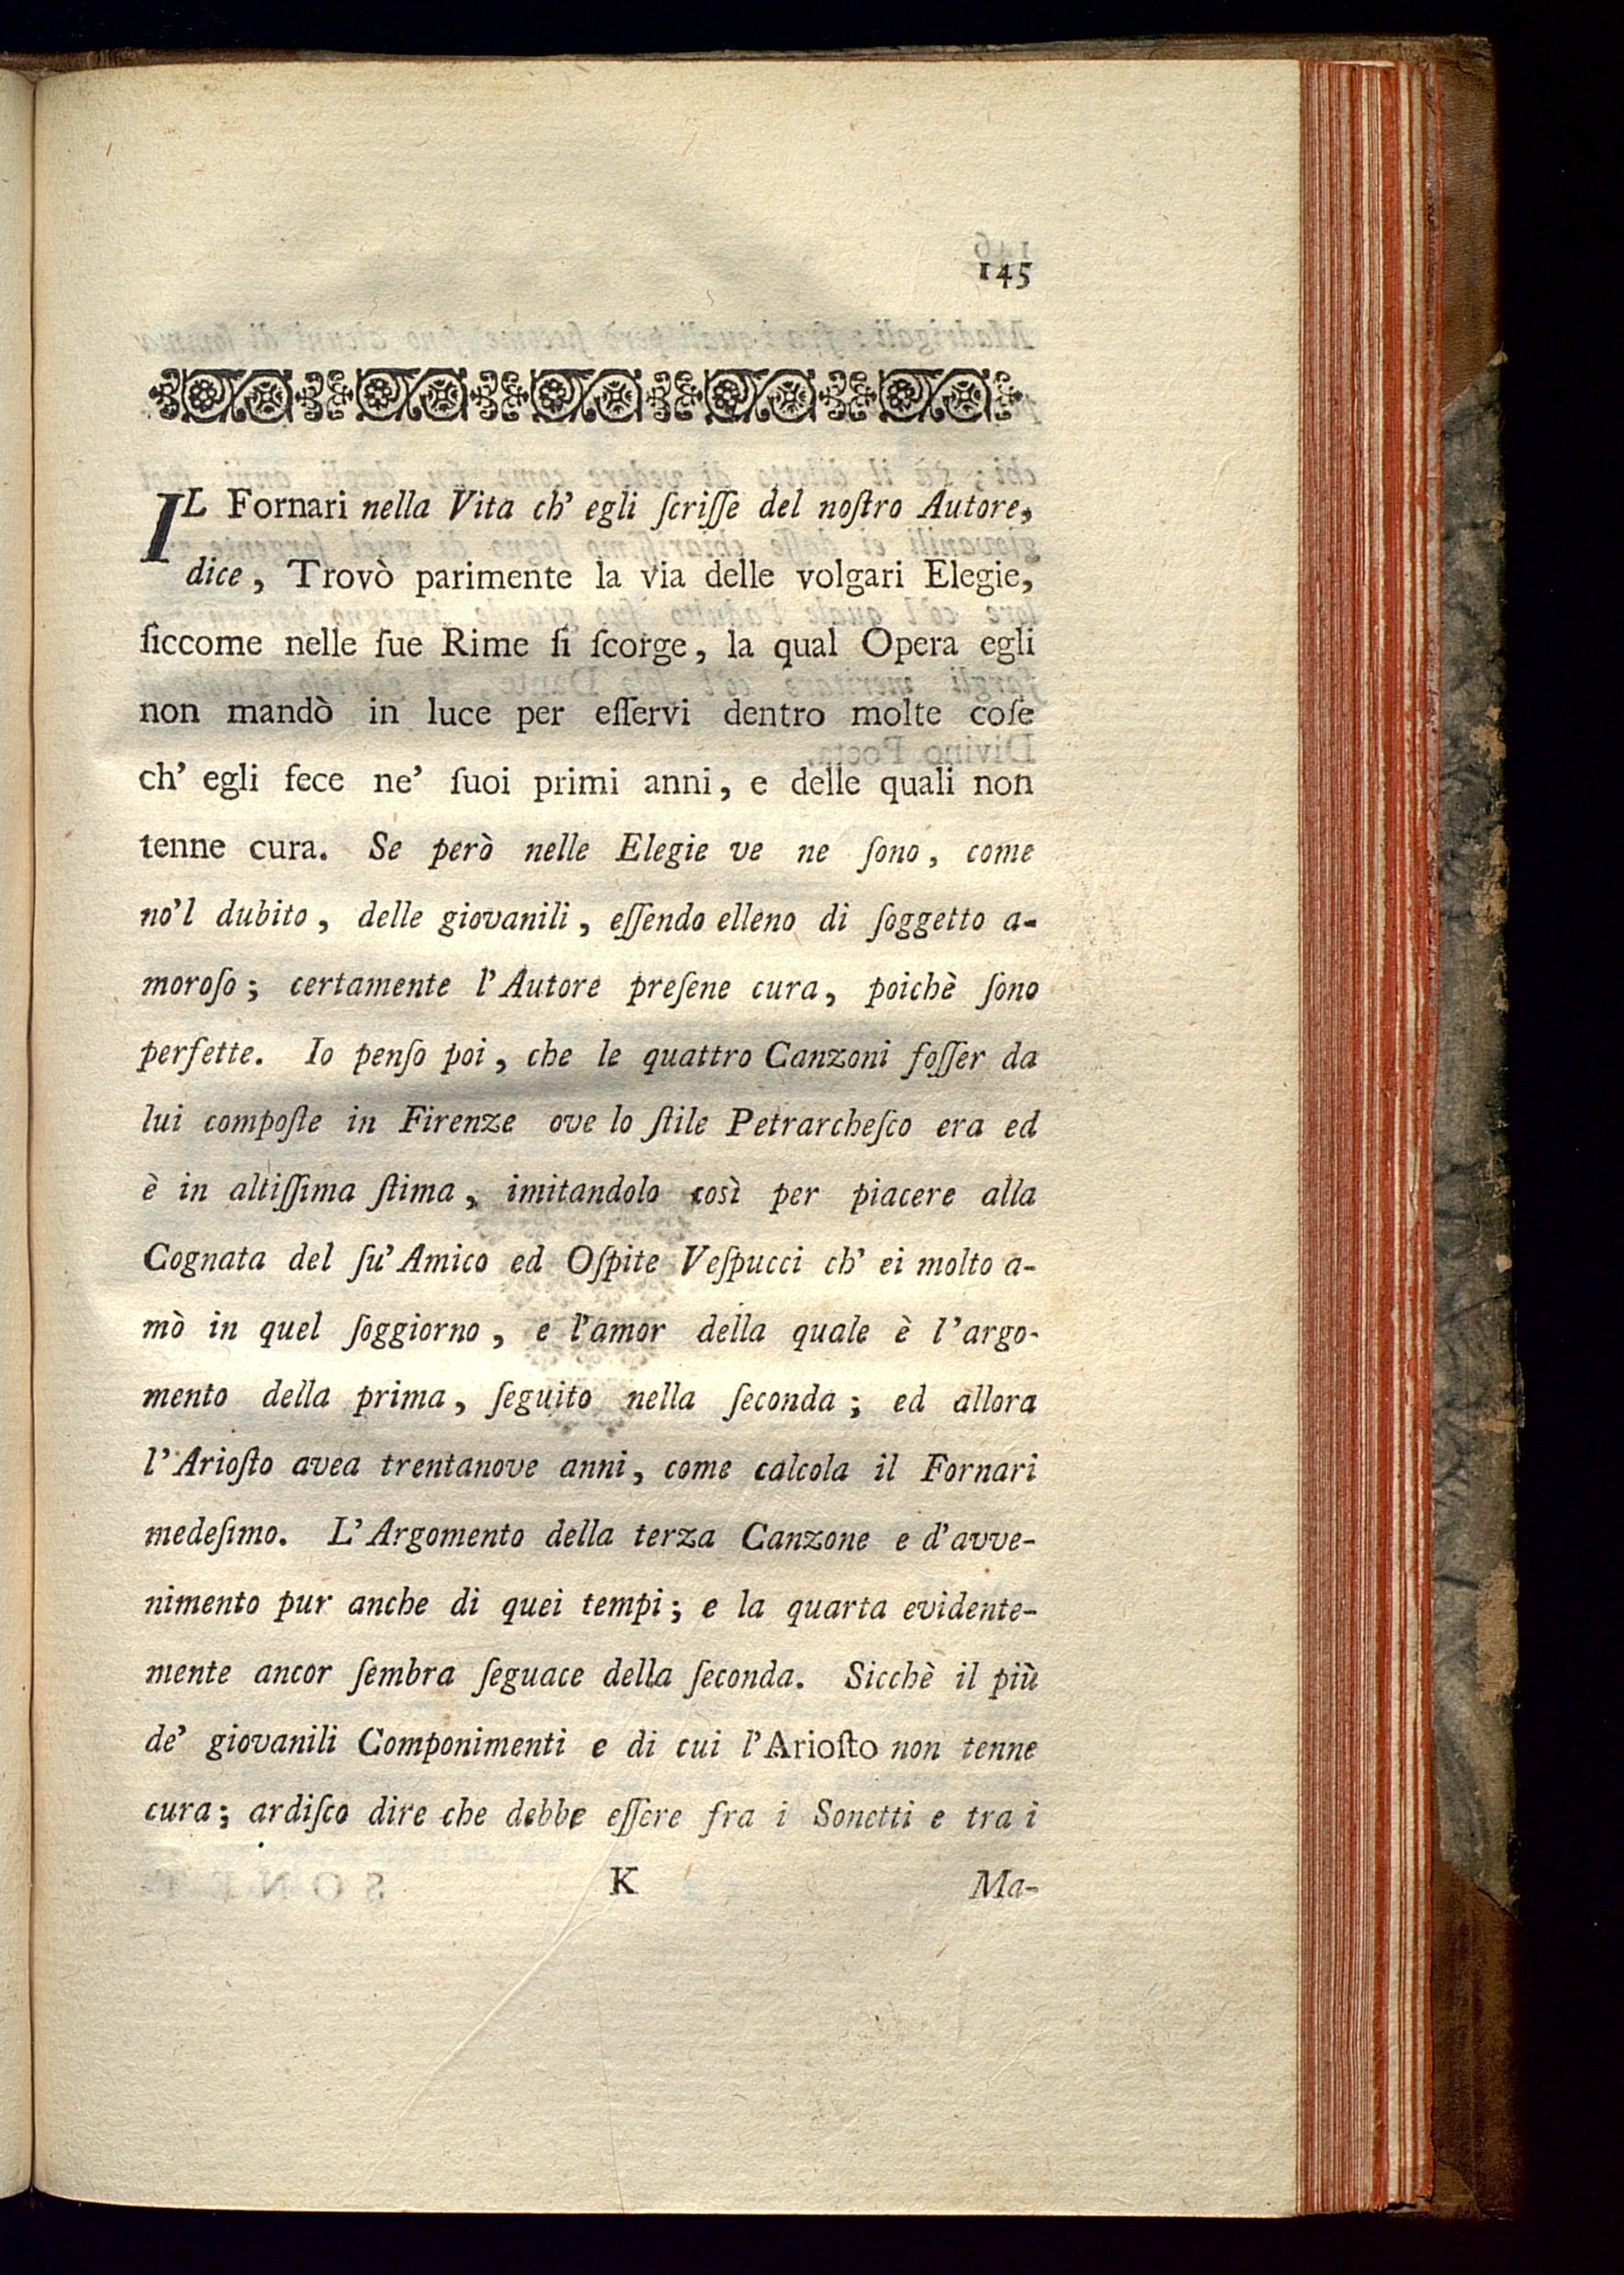 145
IL Fornari nella Vita ch' egli ſcriſſe del noſtro Autore,
dice, Trovò parimente la via delle volgari Elegie,
ſiccome nelle ſue Rime ſi ſcorge, la qual Opera egli
non mandò in luce per eſſervi dentro molte coſe
ch' egli fece ne' ſuoi primi anni, e delle quali non
tenne cura. Se però nelle Elegie ve ne ſono, come
no'l dubito, delle giovanili, eſſendo elleno di ſoggetto a-
moroſo; certamente l'Autore preſene cura, poichè ſono
perfette. Io penſo poi, che le quattro Canzoni foſſer da
lui compoſte in Firenze ove lo ſtile Petrarcheſco era ed
è in altiſſima ſtima, imitandolo così per piacere alla
Cognata del ſu' Amico ed Oſpite Veſpucci ch' ei molto a-
mò in quel ſoggiorno, e l'amor della quale è l'argo-
mento della prima, ſeguito nella ſeconda; ed allora
l'Arioſto avea trentanove anni, come calcola il Fornari
medeſimo. L'Argomento della terza Canzone e d'avve-
nimento pur anche di quei tempi; e la quarta evidente-
mente ancor ſembra ſeguace della ſeconda. Sicchè il più
de' giovanili Componimenti e di cui l'Arioſto non tenne
cura; ardiſco dire che debbe eſſere fra i Sonetti e tra i
K Ma-